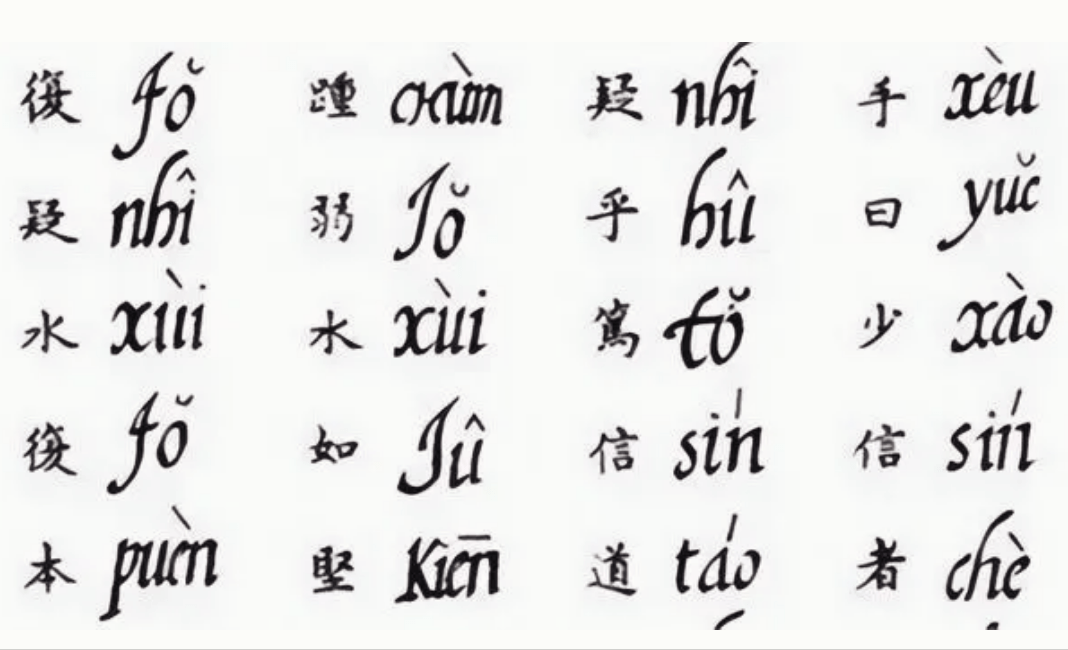 手 xèu 曰 yuĕ 少 xào 信 sín 者 chè
疑 nhî 乎 hû 篤 tŏ 信 sín 道 táo
踵 chùm 弱 Jŏ 水 xùi 如 Jû 堅 Kiēn
復 fŏ 疑 nhî 水 xùi 復 fŏ 本 puèn